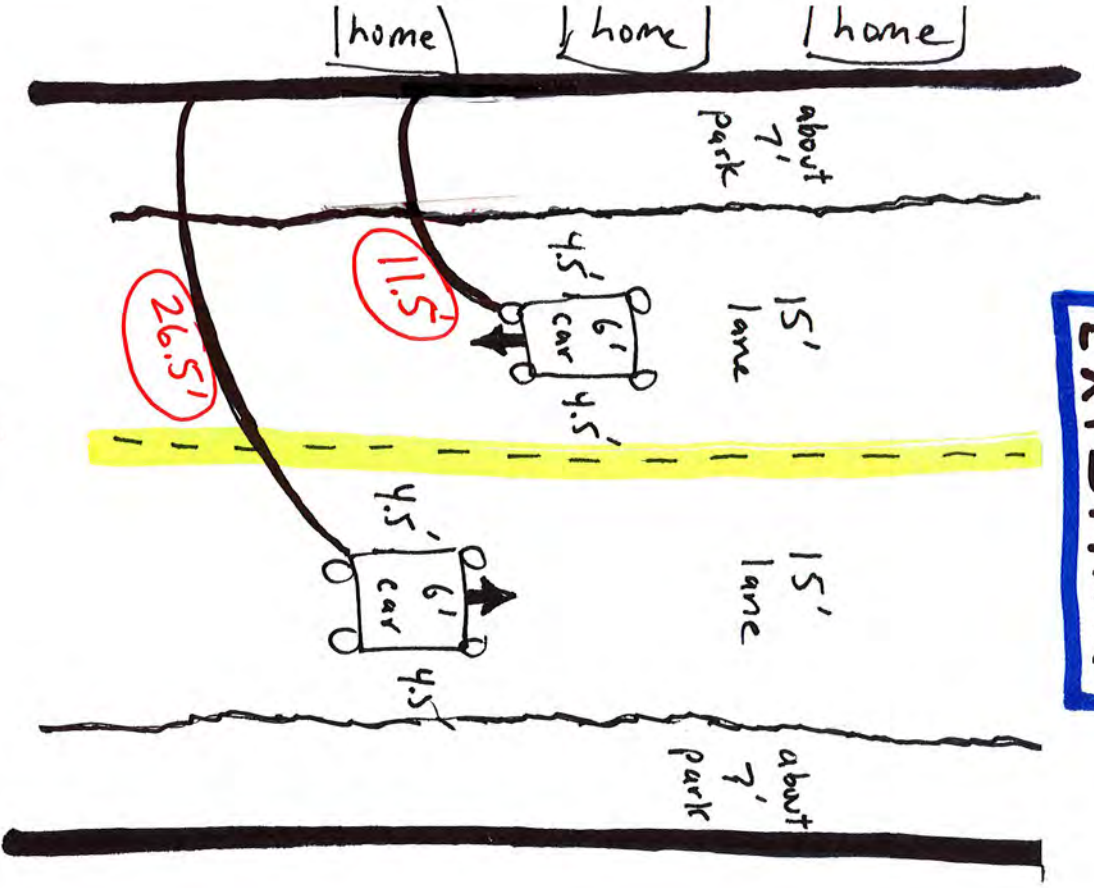 home
home
home
about
7'
park
4.5'
15'
lane
11.5'
6'
car
4.5'
26.5'
4.5'
15'
lane
6'
car
4.5'
about
7'
park